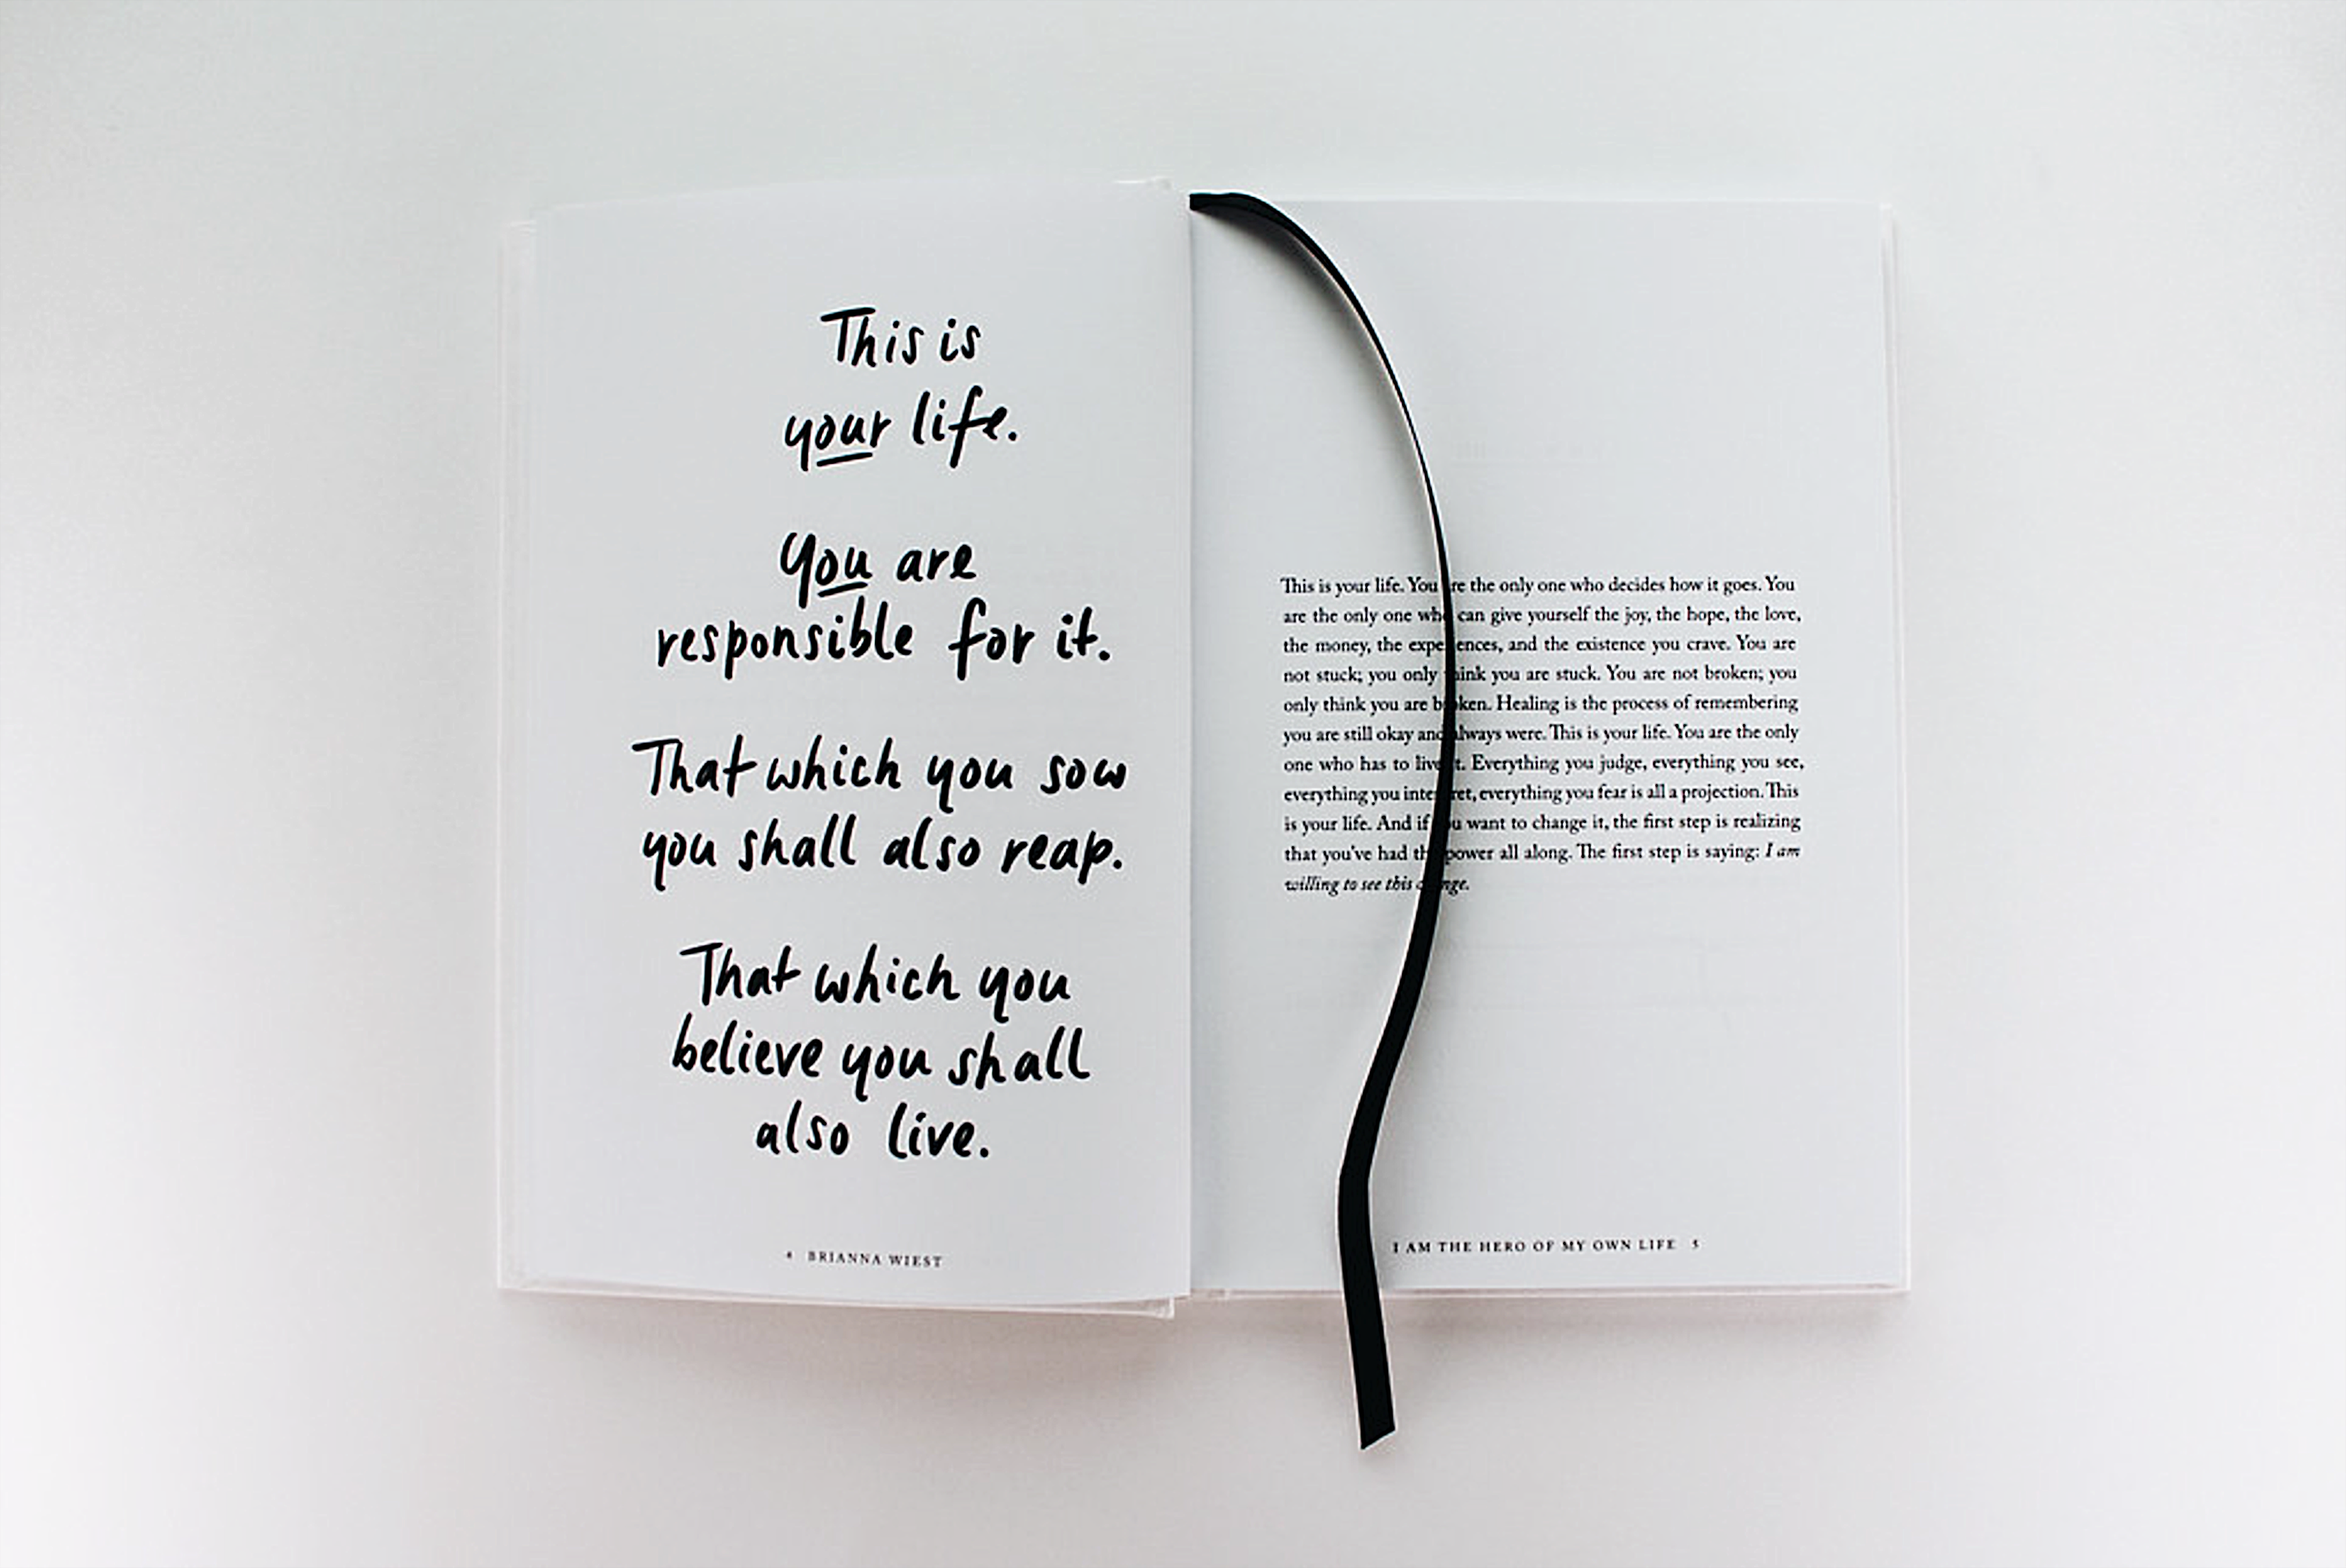 This is
your life.
You are
responsible for it.
That which you sow
you shall also reap.
That which you
believe you shall
also live.
4 BRIANNA WIEST
This is your life. You are the only one who decides how it goes. You
are the only one who can give yourself the joy, the hope, the love,
the money, the experiences, and the existence you crave. You are
not stuck; you only think you are stuck. You are not broken; you
only think you are broken. Healing is the process of remembering
you are still okay and always were. This is your life. You are the only
one who has to live it. Everything you judge, everything you see,
everything you interpret, everything you fear is all a projection. This
is your life. And if you want to change it, the first step is realizing
that you've had the power all along. The first step is saying: I am
willing to see this change.
I AM THE HERO OF MY OWN LIFE 5